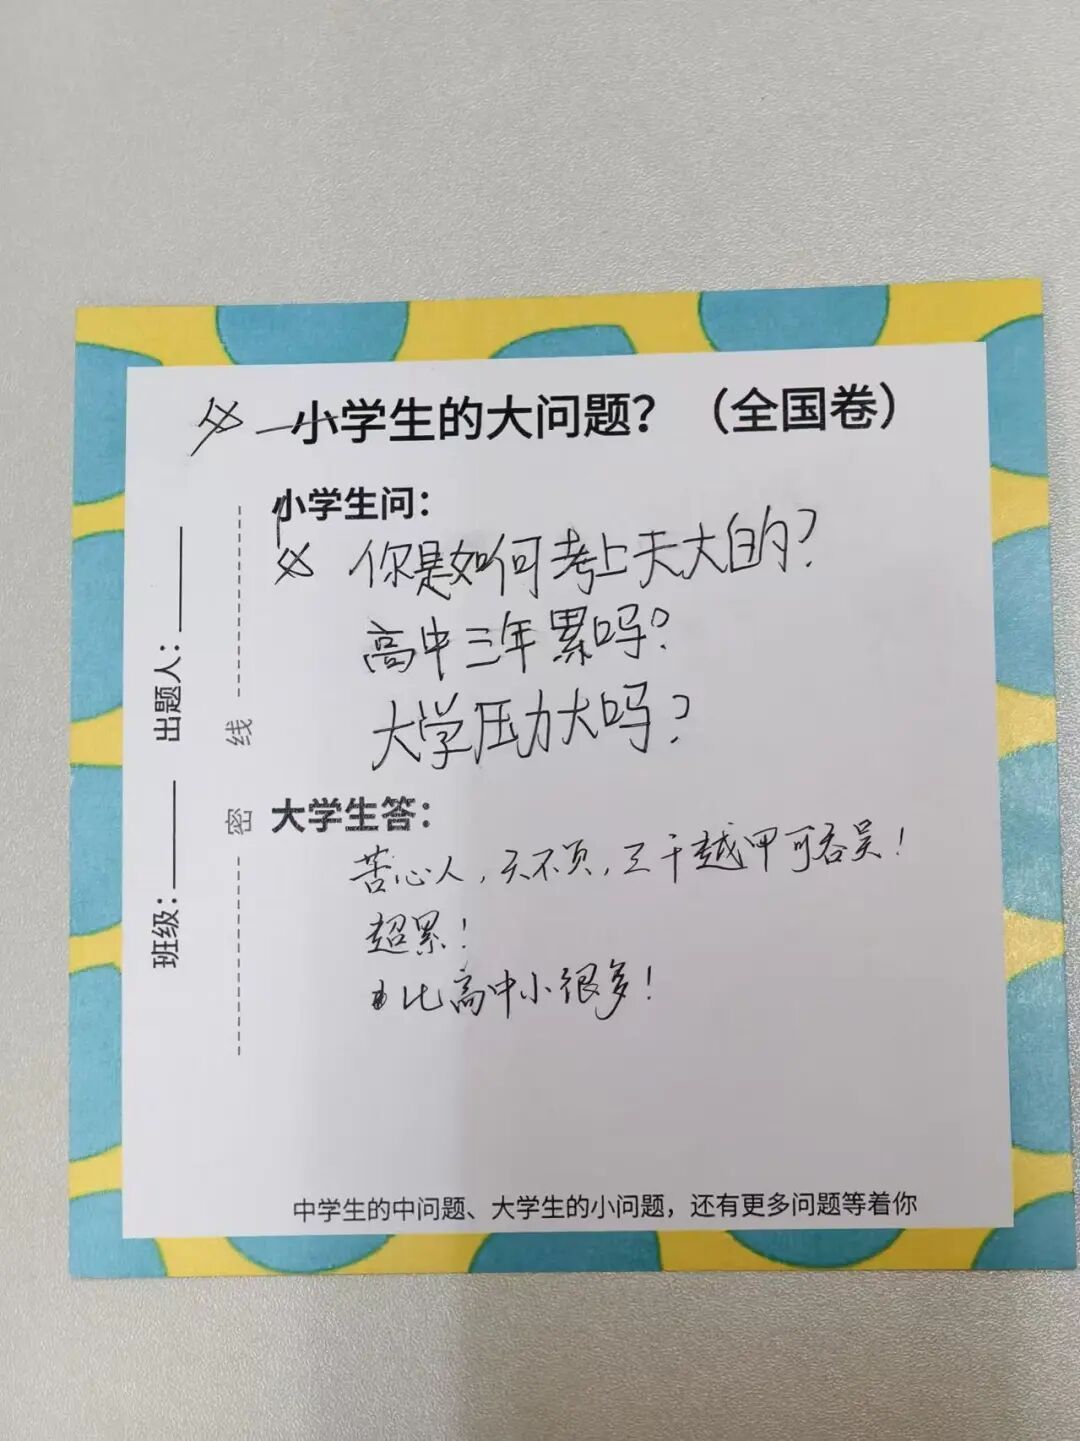 小学生的大问题？（全国卷）
小学生问：
你是如何考上天大的?
高中三年累吗?
大学压力大吗?
大学生答：
苦心人,天不负,三千越甲可吞吴!
超累!
比高中小很多!
中学生的中问题、大学生的小问题，还有更多问题等着你
班级：
出题人：
密
线